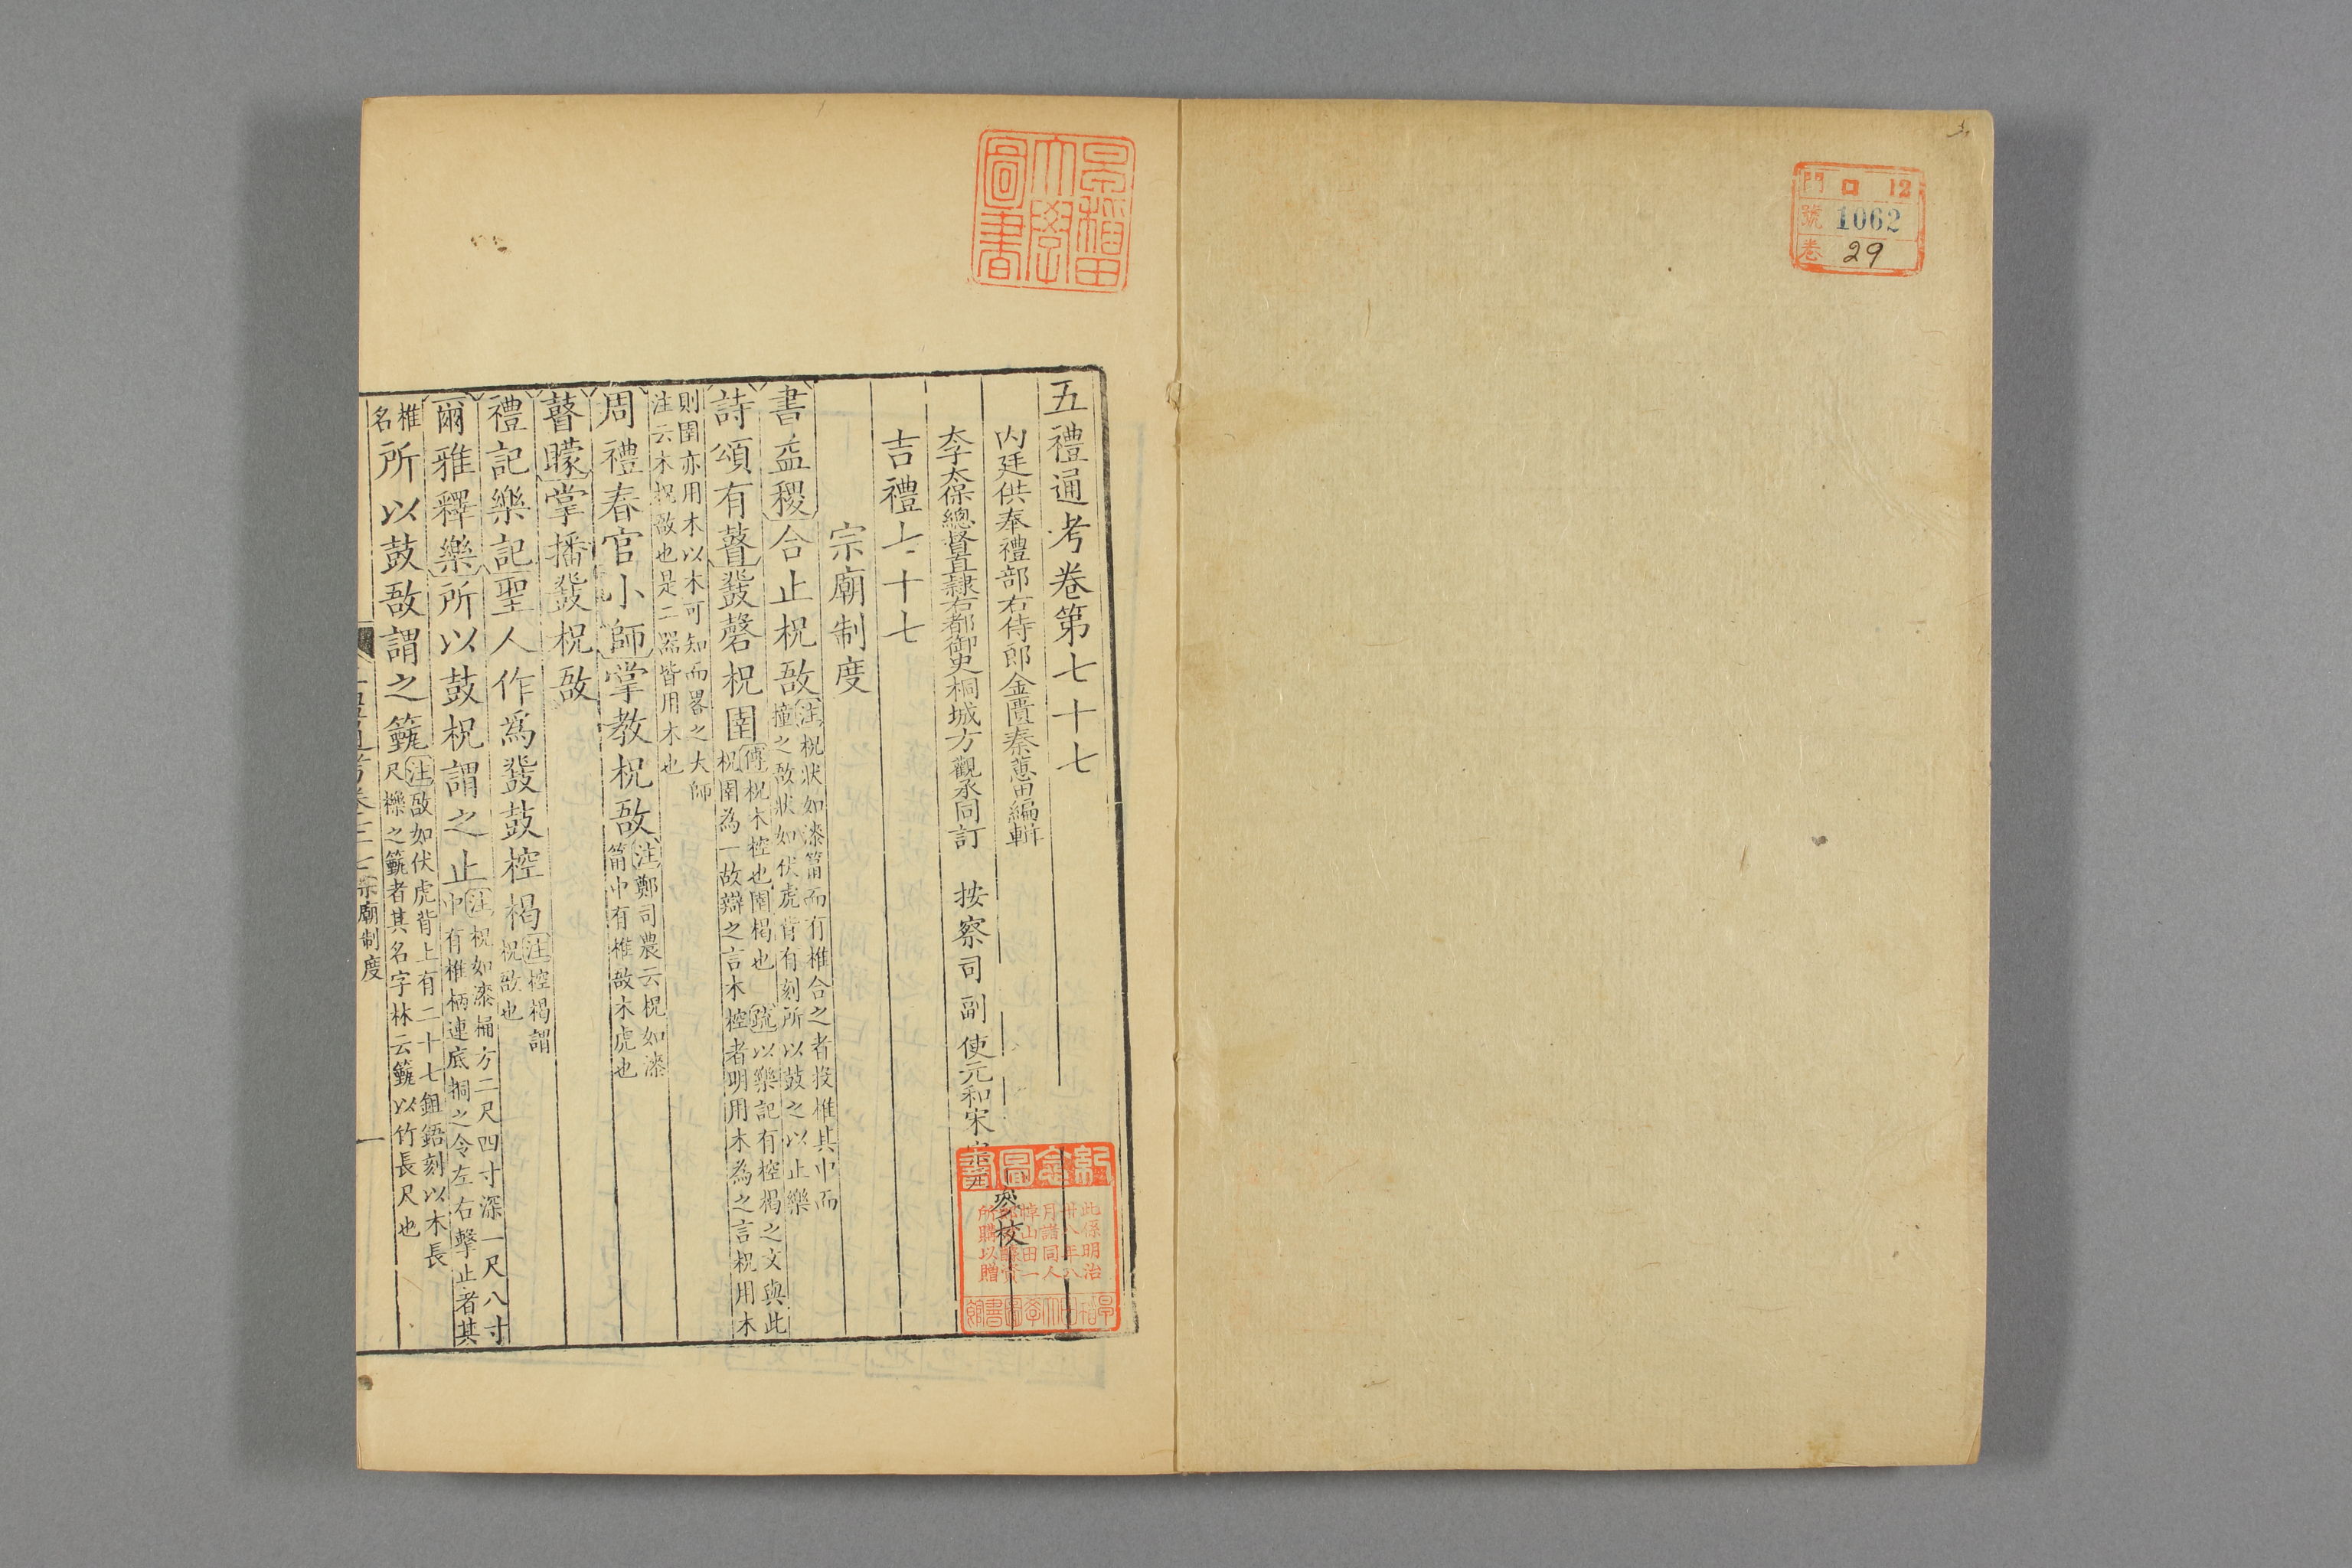 門 ロ 12
號 1062
卷 29
早稲田大學圖書
五禮通考卷第七十七
内廷供奉禮部右侍郎金匱秦蕙田編輯
太子太保總督直隸右都御史桐城方觀承同訂 按察司副使元和宋宗元參校
吉禮七十七
宗廟制度
書益稷合止柷敔注柷狀如漆筩而有椎合之者投椎其中而
撞之敔狀如伏虎背有刻所以鼓之以止樂
詩頌有瞽鼗磬柷圉傳柷木椌也圉楬也 疏以樂記有椌楬之文與此
柷圉為一故辯之言木椌者明用木為之言柷用木
則圉亦用木以木可知而畧之大師
注云木柷敔也是二器皆用木也
周禮春官小師掌教柷敔注鄭司農云柷如漆
筩中有椎敔木虎也
瞽矇掌播鼗柷敔
禮記樂記聖人作爲鼗鼓椌楬注椌楬謂
柷敔也
爾雅釋樂所以鼓柷謂之止注柷如漆桶方二尺四寸深一尺八寸
中有椎柄連底挏之令左右擊止者其
椎
名
所以鼓敔謂之籈注敔如伏虎背上有二十七鉏鋙刻以木長
尺櫟之籈者其名字林云籈以竹長尺也
宗廟制度 一
此係明治
卅八年八
月諸同人
悼山田一
所購以贈